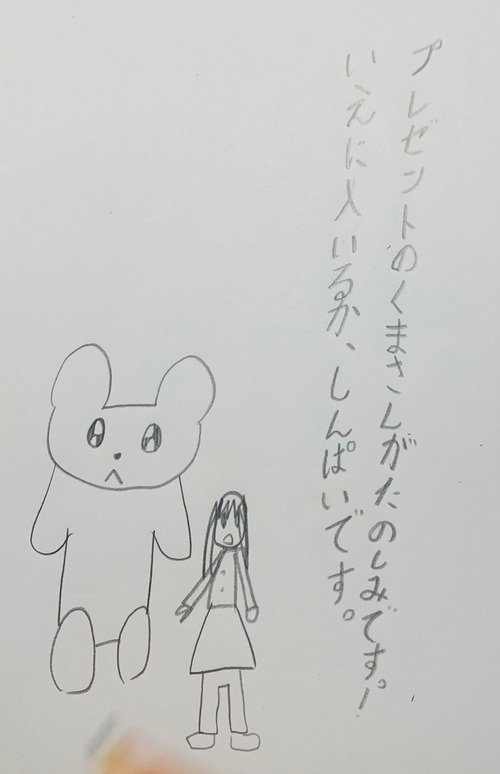 プレゼントのくまさんがたのしみです。!
いえに入いるか、しんぱいです。